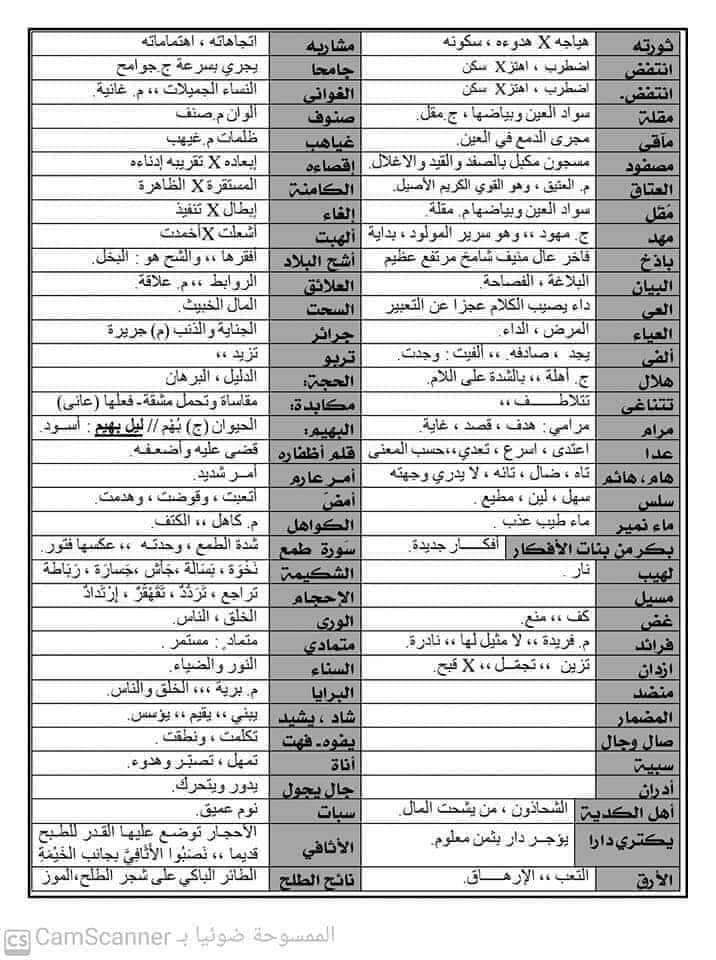 ثورته هياجه X هدوءه ، سكونه مشاربه اتجاهاته ، اهتماماته
انتفض اضطرب ، اهتز X سكن جامحا يجري بسرعة ج.جوامح
انتفض. اضطرب ، اهتز X سكن الغواني النساء الجميلات ،، م. غانية.
مقلة سواد العين وبياضها ، ج.مقل. صنوف ألوان م.صنف
مآقي مجرى الدمع في العين. غياهب ظلمات م.غيهب
مصفود مسجون مكبل بالصفد والقيد والاغلال. إقصاءه إبعاده X تقريبه إدناءه
العتاق م. العتيق ، وهو القوي الكريم الأصيل. الكامنة المستقرة X الظاهرة
مُقَل سواد العين وبياضها م. مقلة. إلغاء إبطال X تنفيذ
مهد ج. مهود ،، وهو سرير المولود ، بداية ألهبت أشعلت X أخمدت
باذخ فاخر عال منيف شامخ مرتفع عظيم أشح البلاد أفقرها ،، والشح هو : البخل.
البيان البلاغة ، الفصاحة. العلائق الروابط ،، م. علاقة.
العي داء يصيب الكلام عجزا عن التعبير السحت المال الخبيث.
العياء المرض ، الداء. جرائر الجناية والذنب (م) جريرة
ألفى يجد ، صادفه. ،، ألفيت : وجدت. تربو تزيد ،،
هلال ج. أهلة ،، بالشدة على اللام. الحجة: الدليل ، البرهان
تتناغى تتلاطــــف ،، مكابدة: مقاساة وتحمل مشقة- فعلها (عانى)
مرام مرامي : هدف ، قصد ، غاية. البهيم: الحيوان (ج) بُهْم // ليل بهيم : أسـود.
عدا اعتدى ، اسرع ، تعدي،،حسب المعنى قلم أظفاره قضى عليه وأضعـفـه.
هام، هائم تاه ، ضال ، تائه ، لا يدري وجهته أمر عارم أمـر شديد.
سلس سهل ، لين ، مطيع . أمضّ أتعبت ، وقوضت ، وهدمت.
ماء نمير ماء طيب عذب . الكواهل م. كاهل ،، الكتف.
بكر من بنات الأفكار أفكــــار جديدة. سَورة طمع شدة الطمع ، وحدتـه ،، عكسها فتور.
لهيب نار . الشكيمة نَخْوَة ، بَسَالَة ،جَأش ،جَسَارَة ، رَبَاطَة
مسيل الإحجام تراجع ، تَرَدُّدٌ ، تَقَهْقُرٌ ، إِرْتَدادٌ
غض كف ،، منع. الورى الخلق ، الناس.
فرائد م. فريدة ،، لا مثيل لها ،، نادرة. متمادي متمادٍ : مستمر .
ازدان تزين ،، تجمّـل ،، X قبح. السناء النور والضياء.
منضد البرايا م. برية ،،، الخلق والناس.
المضمار شاد ، يشيد يبني ،، يقيم ،، يؤسس.
صال وجال يفوه- فهت تكلمت ، ونطقت .
سبية أناة تمهل ، تصبّر وهدوء.
أدران جال يجول يدور ويتحرك.
أهل الكدية الشحاذون ، من يشحت المال. سبات نوم عميق.
يكتري دارا يؤجـر دار بثمن معلوم. الأثافي الأحجار توضـع عليهـا القدر للطبـخ
قديما ،، نَصَبُوا الأَثَافِيَّ بجانب الخَيْمَةِ
الأرق التعب ،، الإرهــــاق. نائح الطلح الطائر الباكي على شجر الطلح،الموز
CS CamScanner الممسوحة ضوئيا بـ